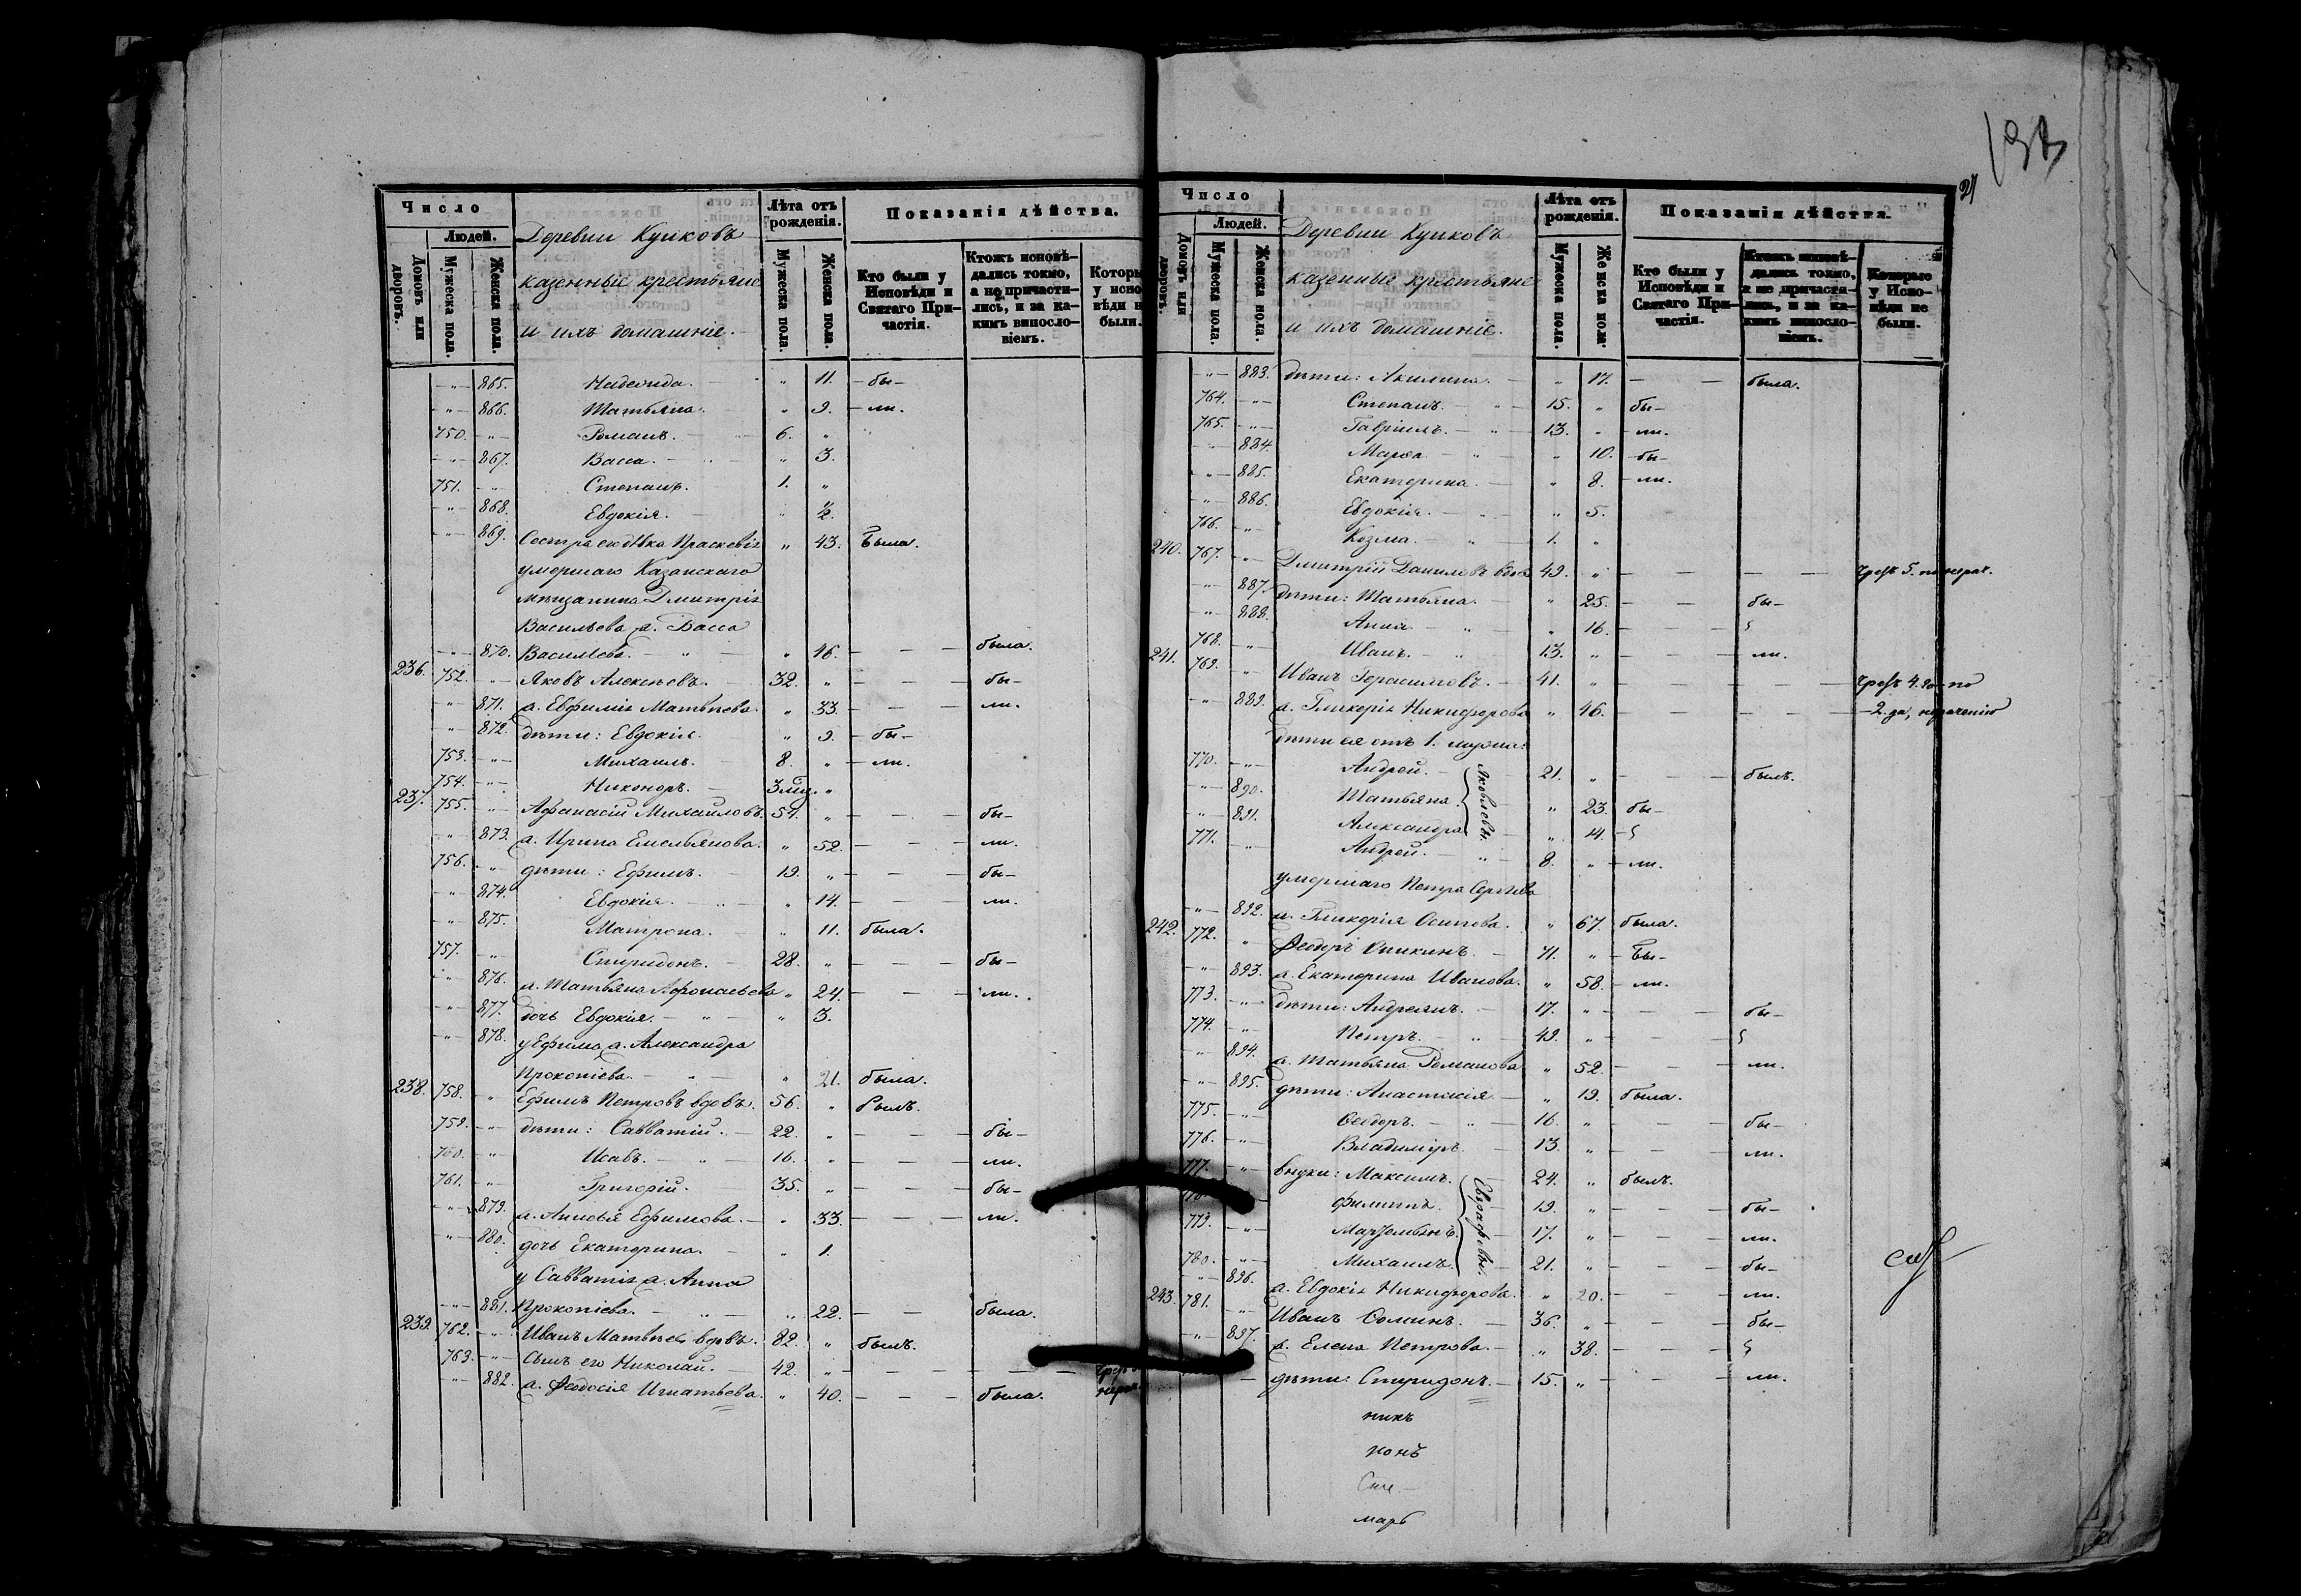 Число
Людей.
Домовъ или дворовъ.
Мужеска пола.
Женска пола.
Деревни Куиковъ
казенные крестьяне
и ихъ домашніе.
Лѣта отъ рожденія.
Мужеска пола.
Женска пола.
Показанія дѣйства.
Кто были у Исповѣди и Святаго При-частія.
Ктожъ исповѣ-дались токмо, а не причасти-лись, и за ка-кимъ виносло-віемъ.
Которы у испо вѣди н были.
865. Надежда. " 11. бы-
866. Татьяна. " 9. ли.
750. Романъ. 6. "
867. Васса. " 3.
751. Степанъ. 1. "
868. Евдокія. " ½.
869. Сестра его дѣвка Праскевія " 43. Была.
умершаго Казанскаго
мѣщанина Дмитрія
Васильева ж. Васса
870. Васильева. " 46. была.
236. 752. Яковъ Алексѣевъ. 32. " бы-
871. ж. Евфимія Матвѣева. " 33. ли.
872. дѣти: Евдокія. " 9. бы-
753. Михаилъ. 8. " ли.
754. Никоноръ. 3 мц. "
237. 755. Афанасій Михайловъ. 54. " бы-
873. ж. Ирина Емельянова. " 52. ли.
756. дѣти: Ефимъ. 19. " бы-
874. Евдокія. " 14. ли.
875. Матрона. " 11. была.
757. Спиридонъ. 28. " бы-
876. ж. Татьяна Афонасьева " 24. ли.
877. дочь Евдокія. " 3.
878. у Ефима ж. Александра
Прокопіева. " 21. была.
238. 758. Ефимъ Петровъ вдовъ. 56. " былъ.
759. дѣти: Савватій. 22. " бы-
760. Исавъ. 16. " ли.
761. Григорій. 35. " бы-
879. ж. Ефимова. " 33. ли.
880. дочь Екатерина. " 1.
у Савватія ж. Анна
881. Прокопіева. " 22. была.
239. 762. Иванъ Матвѣевъ вдовъ. 82. " былъ.
763. Сынъ его Николай. 42. "
882. ж. Феодосія Игнатьева. " 40. была.
Число
Людей.
Домовъ или дворовъ.
Мужеска пола.
Женска пола.
Деревни Куиковъ
казенные крестьяне
и ихъ домашніе.
Лѣта отъ рожденія.
Мужеска пола.
Женска пола.
Показанія дѣйства.
Кто были у Исповѣди и Святаго При-частія.
Ктожъ исповѣ-дались токмо, а не причастя-лись, и за ка-кимъ винosло-віемъ.
Которые у Испо-вѣди не были.
883. дѣти: Акилина. " 17. была.
764. Степанъ. 15. " бы-
765. Гавріилъ. 13. " ли.
884. Марѳа. " 10. бы-
885. Екатерина. " 8. ли.
886. Евдокія. " 5.
766. Козма. 1. "
240. 767. Дмитрій Даниловъ вдов 49. "
887. дѣти: Татьяна. " 25. бы-
888. Анна " 16.
768. Иванъ. 13. " ли.
241. 769. Иванъ Герасимовъ. 41. "
889. ж. Гликерія Никифорова " 46.
дѣти ея отъ 1. мужа:
770. Андрей. 21. " былъ.
890. Татьяна. " 23. бы-
891. Александра " 14.
Яковлевы.
771. Андрей. 8. " ли.
умершаго Петра Сергѣева
892. ж. Гликерія Осипова. " 67. была.
242. 772. Феодоръ Оникинъ. 71. " Бы-
893. ж. Екатерина Иванова. " 58. ли.
773. дѣти: Андреянъ. 17. " бы-
774. Петръ. 49. "
894. ж. Татьяна Романова " 52. ли.
895. дѣти: Анастасія " 19. была.
775. Ѳеодоръ. 16. " бы-
776. Владиміръ. 13. " ли.
777. внуки: Максимъ. 24. " былъ.
Филиппъ. 19. " бы-
779. 17. " ли.
780. Михаилъ. 21. " бы-
Евграфовы.
896. ж. Евдокія Никифорова. " 20. ли.
243. 781. Иванъ Ѳоминъ. 36. " бы-
897. ж. Елена Петрова. " 38.
дѣти: Спиридонъ. 15. " ли.
никъ
конъ
Сте
марь